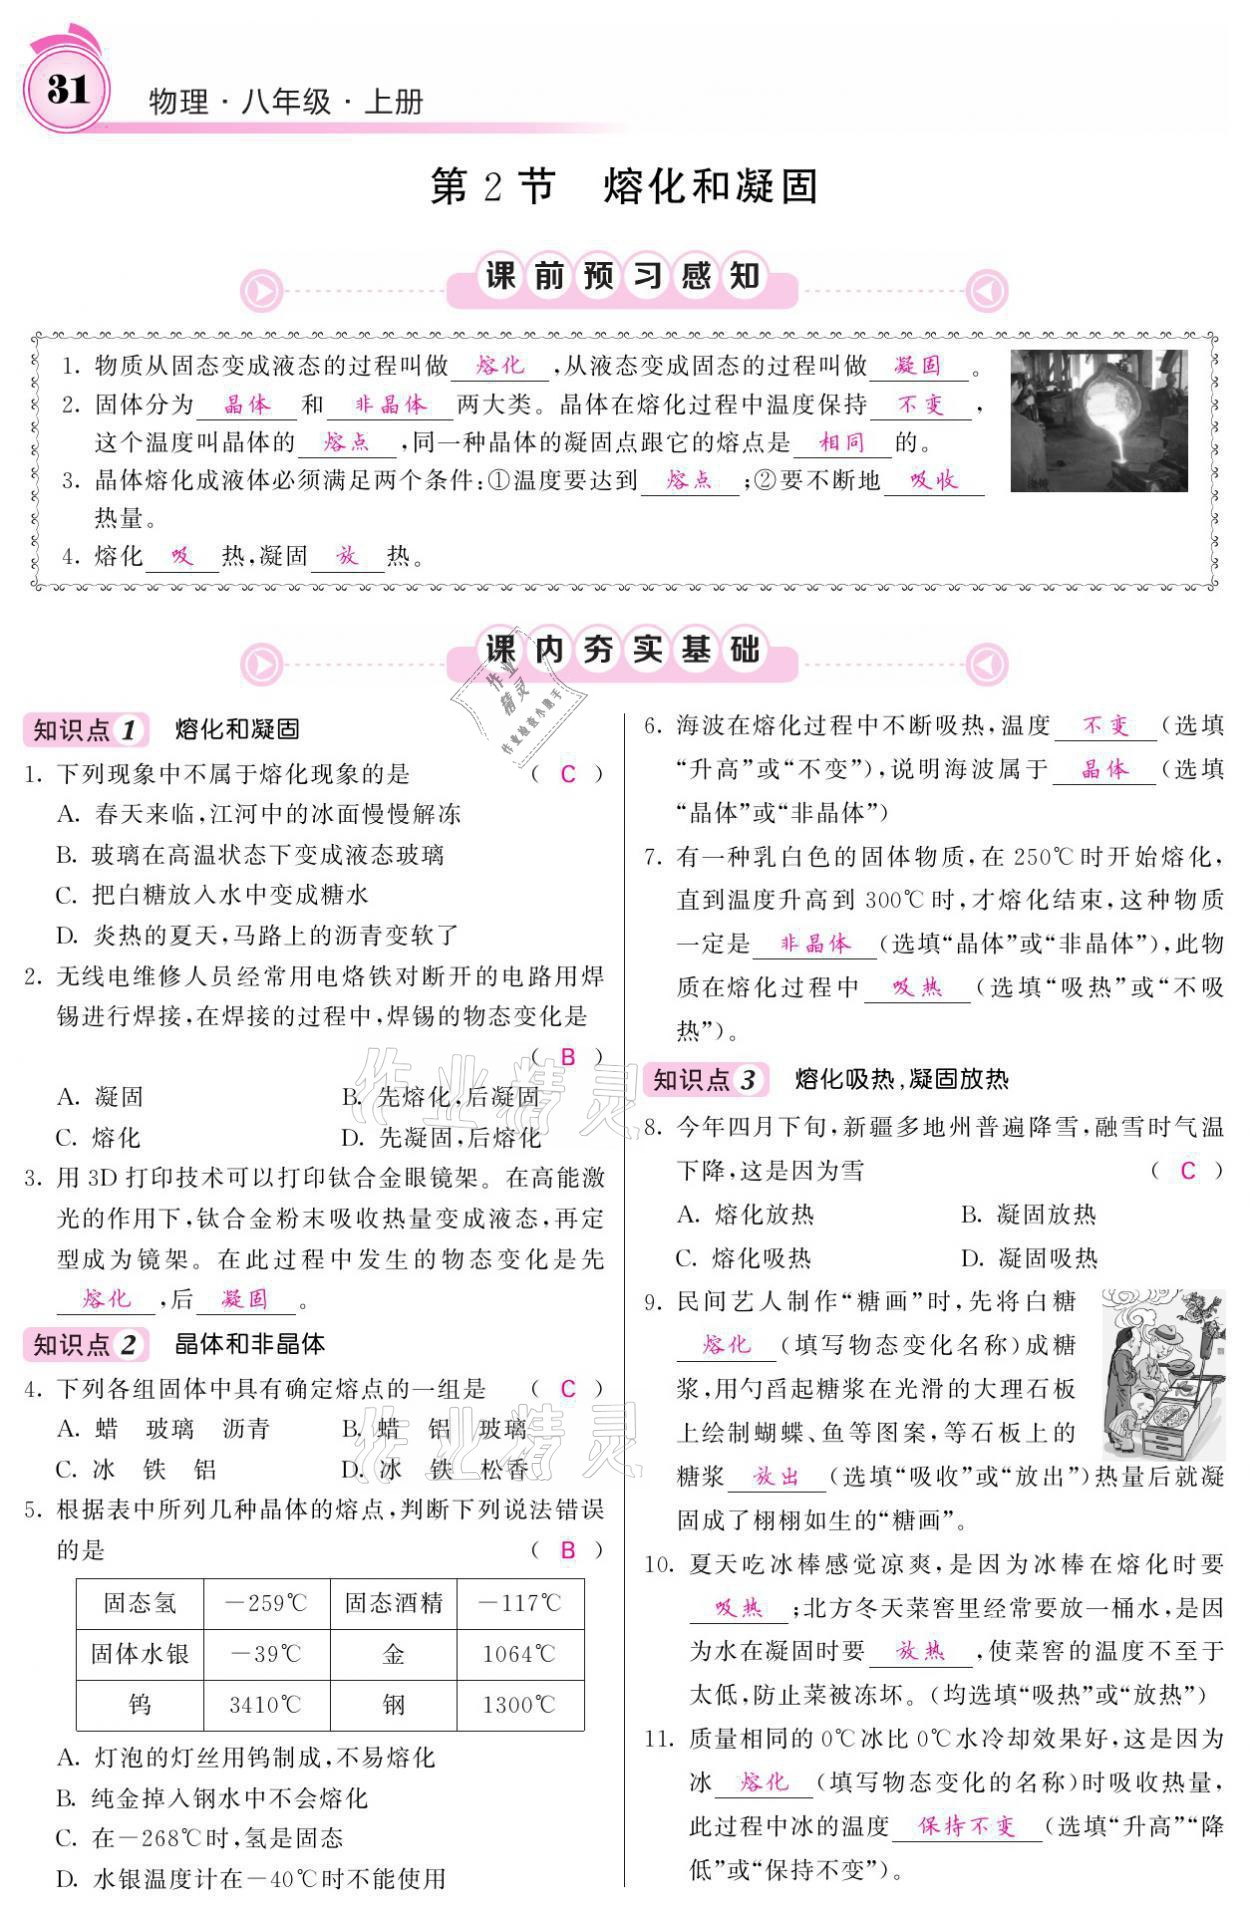 31
物理·八年级·上册
第2节 熔化和凝固
课前预习感知
1. 物质从固态变成液态的过程叫做 熔化 ,从液态变成固态的过程叫做 凝固 。
2. 固体分为 晶体 和 非晶体 两大类。晶体在熔化过程中温度保持 不变 ,
这个温度叫晶体的 熔点 ,同一种晶体的凝固点跟它的熔点是 相同 的。
3. 晶体熔化成液体必须满足两个条件:①温度要达到 熔点 ;②要不断地 吸收
热量。
4. 熔化 吸 热,凝固 放 热。
课内夯实基础
知识点1 熔化和凝固
1. 下列现象中不属于熔化现象的是 ( C )
A. 春天来临,江河中的冰面慢慢解冻
B. 玻璃在高温状态下变成液态玻璃
C. 把白糖放入水中变成糖水
D. 炎热的夏天,马路上的沥青变软了
2. 无线电维修人员经常用电烙铁对断开的电路用焊
锡进行焊接,在焊接的过程中,焊锡的物态变化是
( B )
A. 凝固 B. 先熔化,后凝固
C. 熔化 D. 先凝固,后熔化
3. 用 3D 打印技术可以打印钛合金眼镜架。在高能激
光的作用下,钛合金粉末吸收热量变成液态,再定
型成为镜架。在此过程中发生的物态变化是先
熔化 ,后 凝固 。
知识点2 晶体和非晶体
4. 下列各组固体中具有确定熔点的一组是 ( C )
A. 蜡 玻璃 沥青 B. 蜡 铝 玻璃
C. 冰 铁 铝 D. 冰 铁 松香
5. 根据表中所列几种晶体的熔点,判断下列说法错误
的是 ( B )
固态氢 －259℃ 固态酒精 －117℃
固体水银 －39℃ 金 1064℃
钨 3410℃ 钢 1300℃
A. 灯泡的灯丝用钨制成,不易熔化
B. 纯金掉入钢水中不会熔化
C. 在－268℃时,氢是固态
D. 水银温度计在－40℃时不能使用
6. 海波在熔化过程中不断吸热,温度 不变 (选填
“升高”或“不变”),说明海波属于 晶体 (选填
“晶体”或“非晶体”)
7. 有一种乳白色的固体物质,在 250℃时开始熔化,
直到温度升高到 300℃时,才熔化结束,这种物质
一定是 非晶体 (选填“晶体”或“非晶体”),此物
质在熔化过程中 吸热 (选填“吸热”或“不吸
热”)。
知识点3 熔化吸热,凝固放热
8. 今年四月下旬,新疆多地州普遍降雪,融雪时气温
下降,这是因为雪 ( C )
A. 熔化放热 B. 凝固放热
C. 熔化吸热 D. 凝固吸热
9. 民间艺人制作“糖画”时,先将白糖
熔化 (填写物态变化名称)成糖
浆,用勺舀起糖浆在光滑的大理石板
上绘制蝴蝶、鱼等图案,等石板上的
糖浆 放出 (选填“吸收”或“放出”)热量后就凝
固成了栩栩如生的“糖画”。
10. 夏天吃冰棒感觉凉爽,是因为冰棒在熔化时要
吸热 ;北方冬天菜窖里经常要放一桶水,是因
为水在凝固时要 放热 ,使菜窖的温度不至于
太低,防止菜被冻坏。(均选填“吸热”或“放热”)
11. 质量相同的 0℃冰比 0℃水冷却效果好,这是因为
冰 熔化 (填写物态变化的名称)时吸收热量,
此过程中冰的温度 保持不变 (选填“升高”“降
低”或“保持不变”)。
作业精灵
作业检查小助手
作业精灵
作业精灵